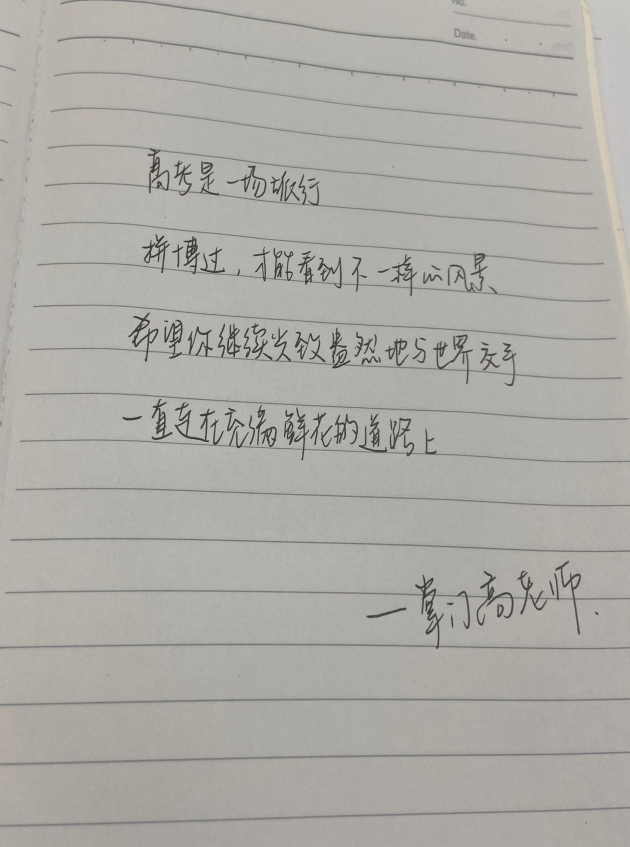 No.
Date.
高考是一场旅行
拼博过，才能看到不一样的风景
希望你继续兴致盎然地与世界交手
一直走在充满鲜花的道路上
—掌门高老师.